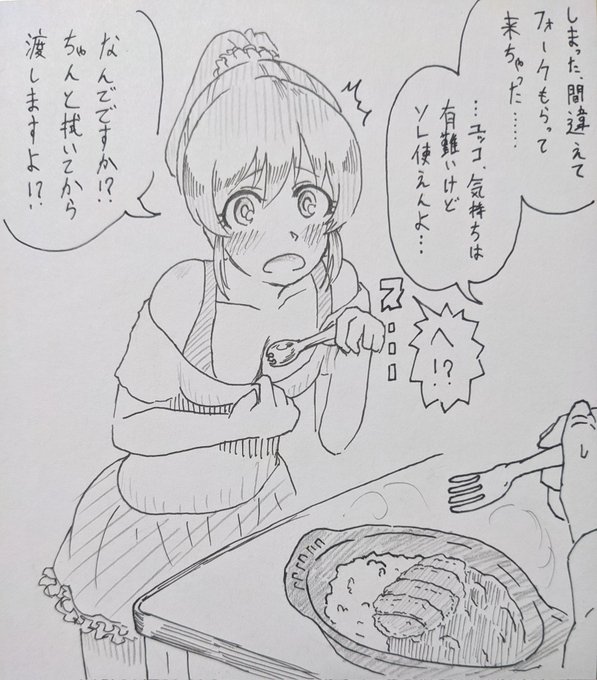 しまった、間違えて
フォークもらって
来ちゃった……
…ユッコ、気持ちは
有難いけど
ソレ使えんよ…
ス…
へ!?
なんでですか!?
ちゃんと拭いてから
渡しますよ!?